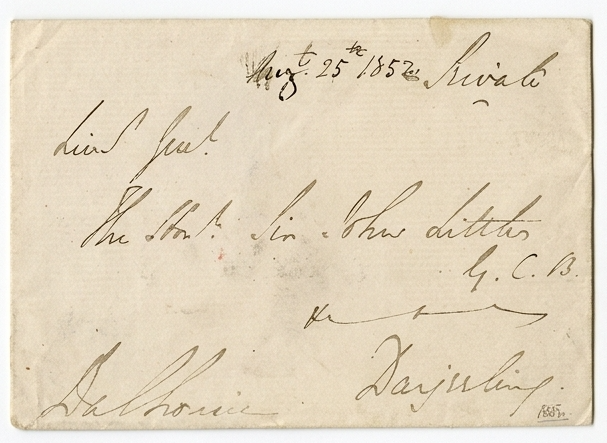 Augt. 25th 1852. Private
Lieut Genl.
The Honble. Sir John Littler
G. C. B.
Dalhousie
Darjeeling.